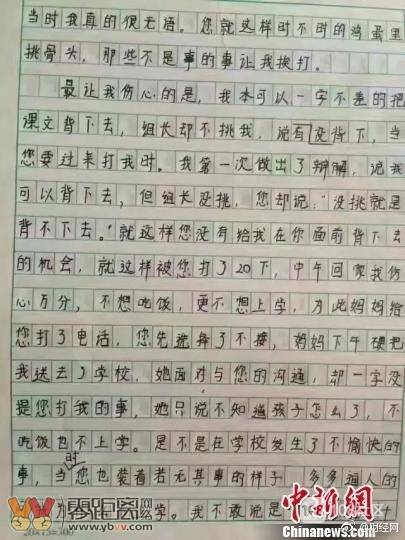 当时我真的很无语。您就这样时不时的鸡蛋里
挑骨头，那些不是事的事让我挨打。
最让我伤心的是，我本可以一字不差的把
课文背下去，组长却不挑我，说有没背下，当
您要过来打我时。我第一次做出了辩解，说我
可以背下去，但组长没挑，您却说：“没挑就是
背不下去。”就这样您没有给我在你面前背下去
的机会，就这样被您打了20下，中午回家我伤
心万分，不想吃饭，更不想上学，为此妈妈给
您打了电话，您先选择了不接，妈妈下午硬把
我送去了学校，她面对与您的沟通，却一字没
提您打我的事，她只说不知道孩子怎么了，不
吃饭也不上学。是不是在学校发生了不愉快的
事，当时您也装着若无其事的样子，多多逼人的
为
学。我不敢说是
www.ybvv.com
20×15=300
中新网
Chinanews.com
@财经网